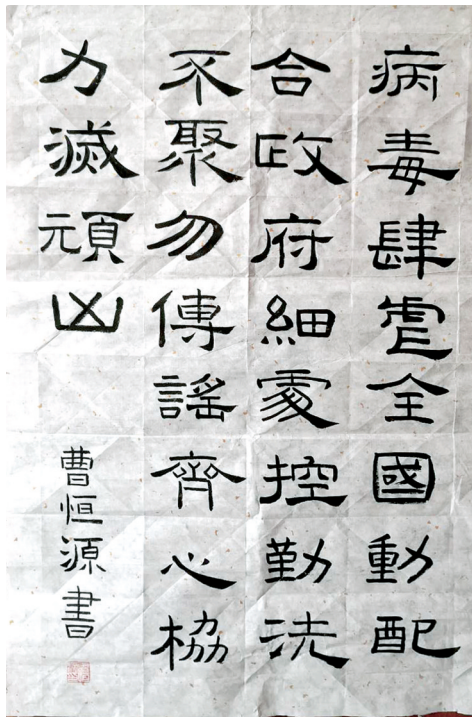 病毒肆虐全國動配
合政府細處控勤洗
不聚勿傳謠齊心協
力滅頑凶
曹恒源書